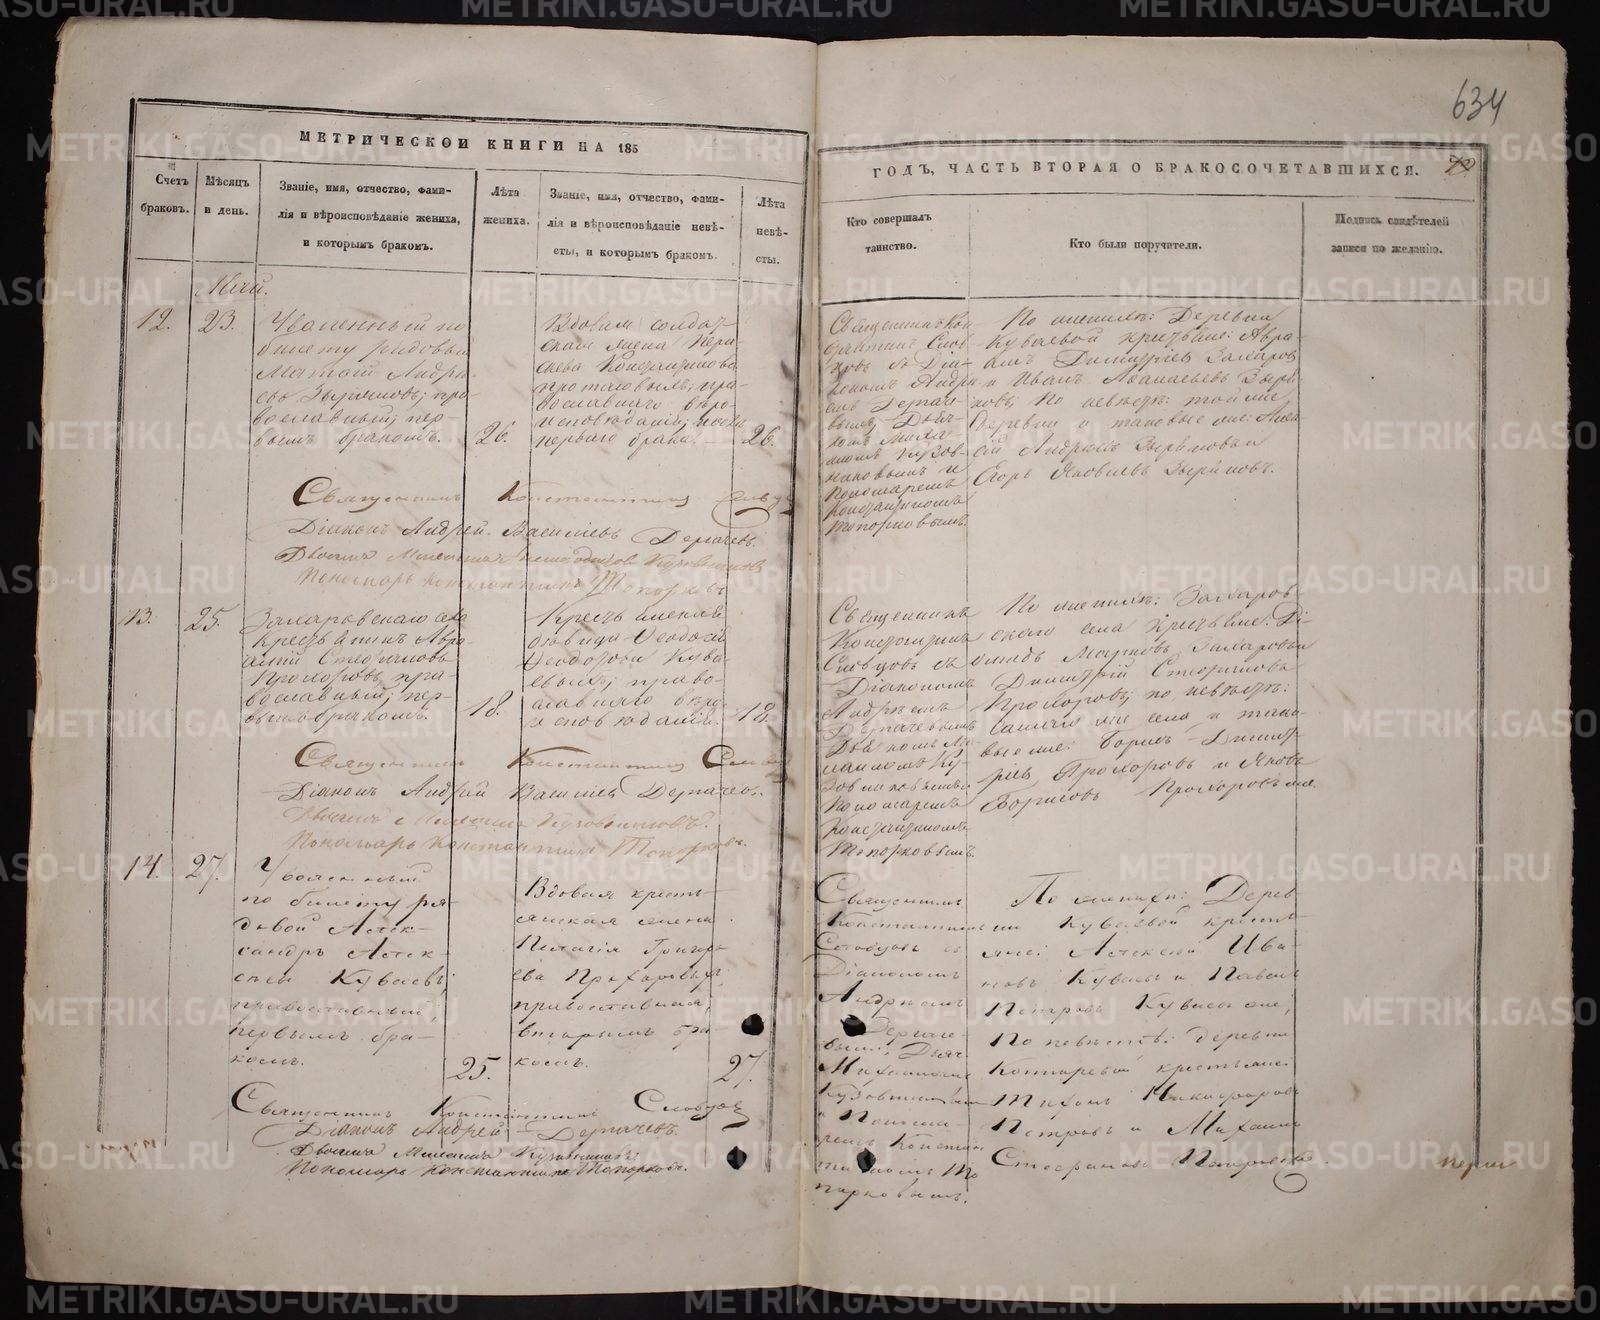 634
МЕТРИЧЕСКОЙ КНИГИ НА 185
ГОДЪ, ЧАСТЬ ВТОРАЯ О БРАКОСОЧЕТАВШИХСЯ.
Счетъ
браковъ.
Мѣсяцъ
и день.
Званіе, имя, отчество, фами-
лія и вѣроисповѣданіе жениха,
и которымъ бракомъ.
Лѣта
жениха.
Званіе, имя, отчество, фами-
лія и вѣроисповѣданіе невѣ-
сты, и которымъ бракомъ.
Лѣта
невѣ-
сты.
Кто совершалъ
таинство.
Кто были поручители.
Подпись свидѣтелей
записи по желанію.
12.
23.
Уволенный по
билету рядовый
Андре-
православный; пер-
вымъ бракомъ.
26.
Вдовая солдат-
ская жена Пара-
скева Константинова
православнаго вѣро-
исповѣданія; послѣ
перваго брака.
26.
Священникъ Кон-
стантинъ Слов-
цовъ съ Діа-
кономъ Андре-
емъ Дергаче-
вымъ, Дьяч-
комъ Миха-
иломъ Кузов-
никовымъ и
Пономаремъ
Константиномъ
Топорковымъ.
По женихѣ: Деревни
Куваевой крестьяне: Авра-
амъ Димитріевъ Захаровъ
и Иванъ Аѳанасьевъ Зыря-
новъ; по невѣстѣ: той же
Деревни и таковые же: Алек-
сѣй Андреевъ Зыряновъ и
Егоръ Яковлевъ Зыряновъ.
Священникъ Константинъ Словцовъ
Діаконъ Андрей Василіевъ Дергачевъ.
Пономарь Константинъ Топорковъ
13.
25.
Захаровскаго села
крестьянинъ Авра-
амій Стефановъ
Прохоровъ, пра-
вославный; пер-
вымъ бракомъ.
18.
Крестьянская
дѣвица Ѳеодосія
Ѳеодорова Кува-
евыхъ; право-
славнаго вѣро-
исповѣданія.
18.
Священникъ
Константинъ
Словцовъ съ
Діакономъ
Андреемъ
Дергачевымъ
Дьячкомъ Ми-
хаиломъ Ку-
зовниковымъ
Пономаремъ
Константиномъ
Топорковымъ.
По женихѣ: Захаров-
скаго села крестьяне:
Захаровъ и
Димитрій Стефановъ
Прохоровъ; по невѣстѣ:
самаго же села и тако-
вые же: Борисъ Димит-
ріевъ Прохоровъ и Яковъ
Борисовъ Прохоровъ же.
Священникъ Константинъ Словцовъ
Діаконъ Андрей Василіевъ Дергачевъ.
Дьячекъ Михаилъ Кузовниковъ.
Пономарь Константинъ Топорковъ.
14.
27.
Уволенный
по билету ря-
довой Алек-
сандръ Алек-
сѣевъ Куваевъ;
православный;
первымъ бра-
комъ.
25.
Вдовая кресть-
янская жена
Пелагія Григорь-
ева Прохоровыхъ,
православная,
вторымъ бра-
комъ.
27.
Священникъ
Константинъ
Словцовъ съ
Діакономъ
Андреемъ
Дергаче-
вымъ, Дьяч.
Михаиломъ
Кузовниковымъ
и Понома-
ремъ Констан-
тиномъ То-
порковымъ.
По женихѣ: Дерев-
ни Куваевой кресть-
яне: Алексѣй Ива-
новъ Куваевъ и Павелъ
Петровъ Куваевъ же;
По невѣстѣ: деревни
Комаревой крестьяне:
Тихонъ Никифоровъ
Петровъ и Михаилъ
Стефановъ
Священникъ Константинъ Словцовъ
Діаконъ Андрей Дергачевъ.
Дьячекъ Михаилъ Кузовниковъ.
Пономарь Константинъ Топорковъ.
METRIKI.GASO-URAL.RU